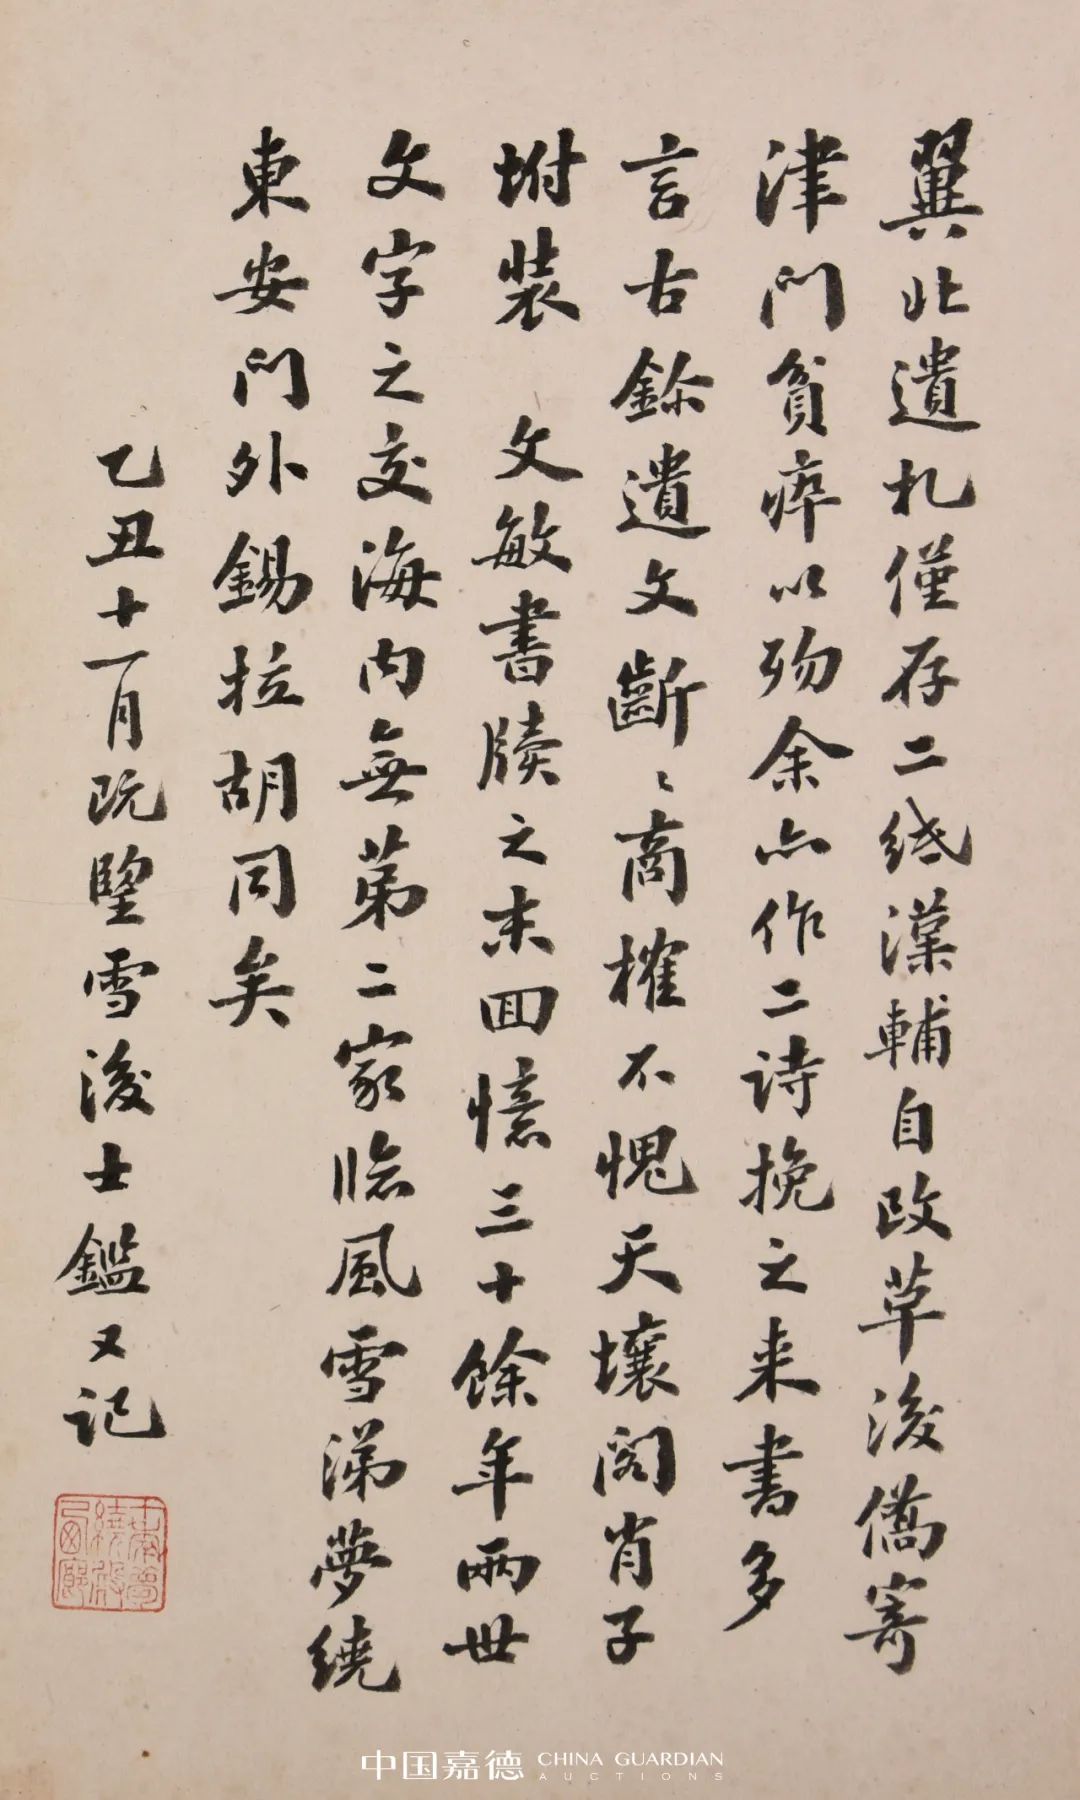 翼北遺札僅存二紙漢輔自改草後僑寄
津門貧瘁以歿余亦作二詩挽之来書多
言古鉨遺文齗〻商榷不愧天壤閣肖子
坿裝　文敏書牘之末回憶三十餘年兩世
文字之交海内無第二家臨風雪涕夢繞
東安門外錫拉胡同矣
乙丑十一月既望雪後士鑑又記
中国嘉德 CHINA GUARDIAN
AUCTIONS